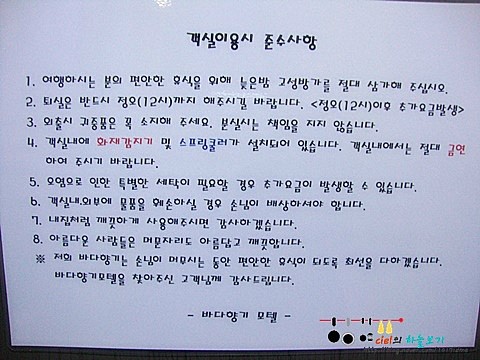 객실이용시 준수사항
1. 여행하시는 분의 편안한 휴식을 위해 늦은밤 고성방가를 절대 삼가해 주십시오.
2. 퇴실은 반드시 정오(12시)까지 해주시길 바랍니다. <정오(12시)이후 추가요금발생>
3. 외출시 귀중품은 꼭 소지해 주세요. 분실시는 책임을 지지 않습니다.
4. 객실내에 화재감지기 및 스프링쿨러가 설치되어 있습니다. 객실내에서는 절대 금연
하여 주시기 바랍니다.
5. 오염으로 인한 특별한 세탁이 필요할 경우 추가요금이 발생할 수 있습니다.
6. 객실내.외부에 물품을 훼손하실 경우 손님이 배상하셔야 합니다.
7. 내집처럼 깨끗하게 사용해주시면 감사하겠습니다.
8. 아름다운 사람들은 머문자리도 아름답고 깨끗합니다.
※ 저희 바다향기는 손님이 머무시는 동안 편안한 휴식이 되도록 최선을 다하겠습니다.
바다향기모텔을 찾아주신 고객님께 감사드립니다.
- 바다향기 모텔 -
ciel의 하늘보기